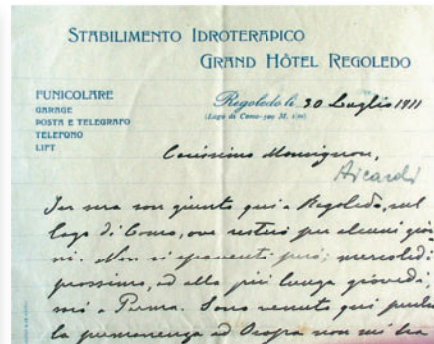 STABILIMENTO IDROTERAPICO
GRAND HÔTEL REGOLEDO
FUNICOLARE
GARAGE
POSTA E TELEGRAFO
TELEFONO
LIFT
Regoledo li 30 Luglio 1911
(Lago di Como
Carissimo Monsignore,
Aicardi
Ier sera son giunto qui a Regoledo, sul
lago di Como, ove resterò per alcuni gior
ni. Non si spaventi però; mercoledì
prossimo, od alla più lunga giovedì,
a Parma. Sono venuto qui perchè
la permanenza ad Oropa non mi ha